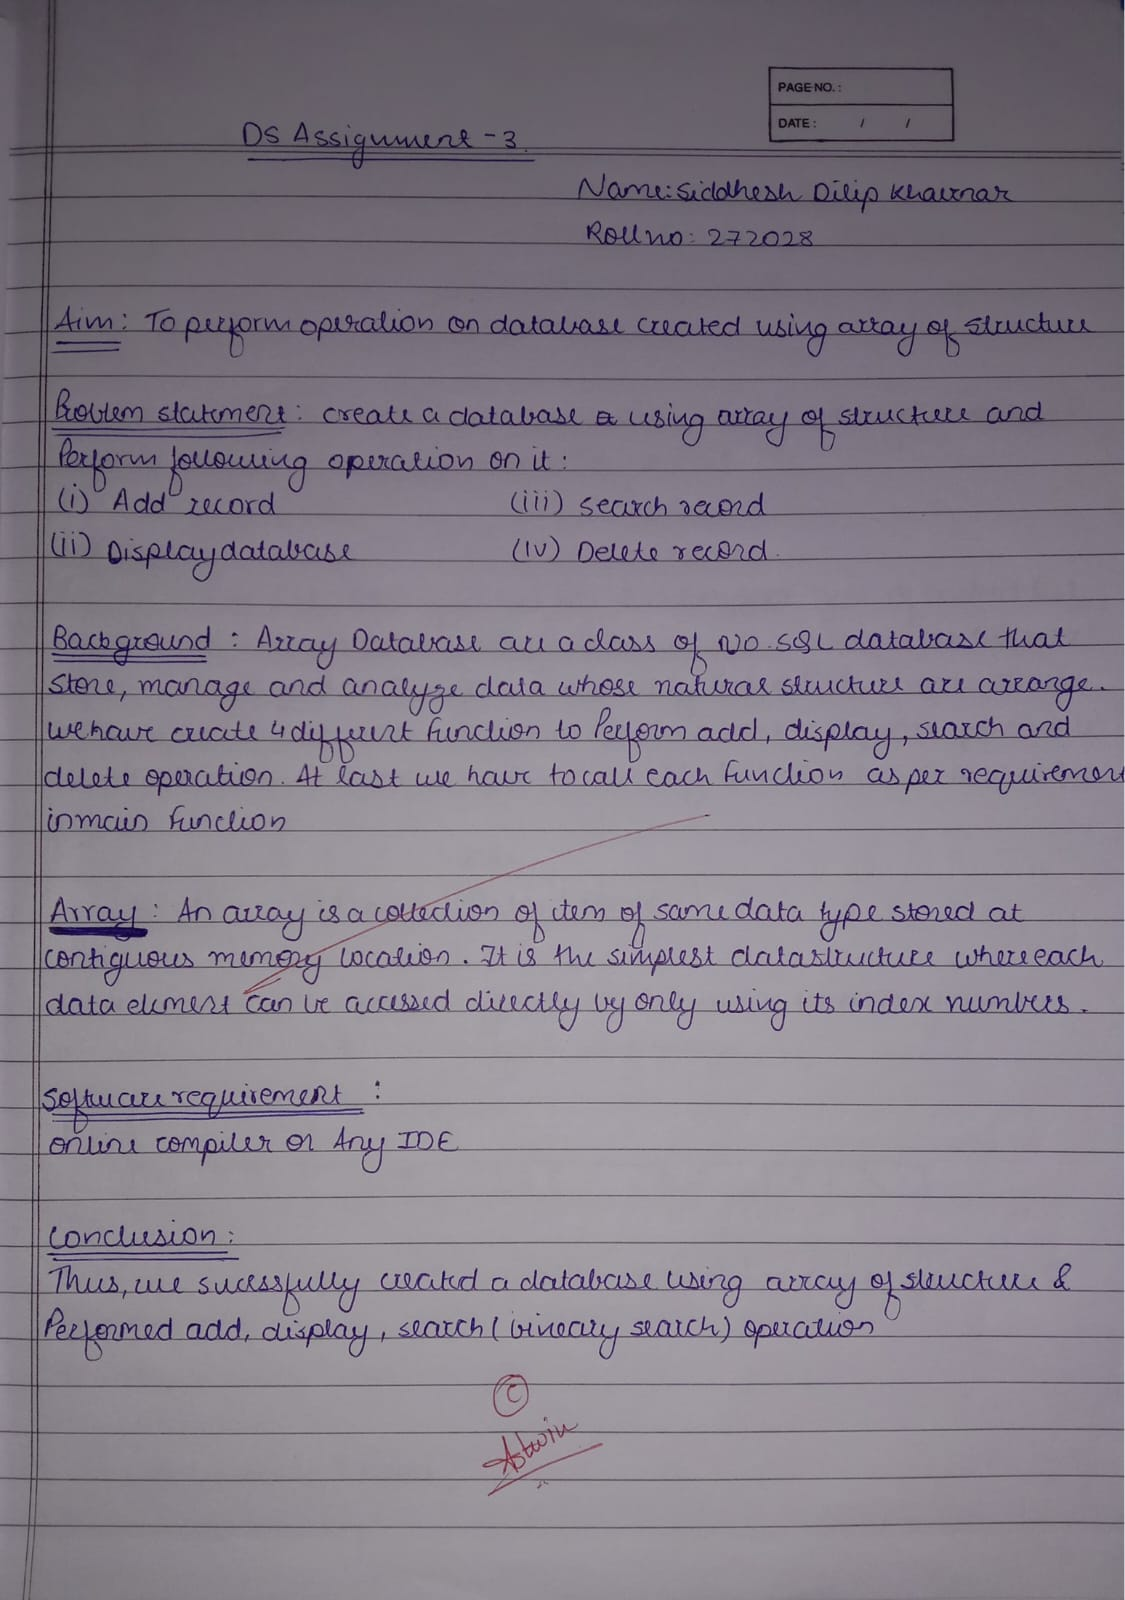 PAGE NO. :
DATE : / /
DS Assignment - 3
Name: Siddhesh Dilip Khairnar
Roll no: 272028
Aim: To perform operation on database created using array of structure
Problem statement: create a database using array of structure and
Perform following operation on it:
(i) Add record (iii) search record
(ii) Display database (iv) Delete record.
Background : Array Database are a class of NO.SQL database that
store, manage and analyze data whose natural structure are arrange.
we have create 4 different function to Perform add, display, search and
delete operation. At last we have to call each function as per requirement
in main function
Array: An array is a collection of item of same data type stored at
contiguous memory location. It is the simplest datastructure where each
data element can be accessed directly by only using its index numbers.
Software requirement :
online compiler or Any IDE
Conclusion:
Thus, we sucessfully created a database using array of structure &
Performed add, display, search (bineary search) operation
C